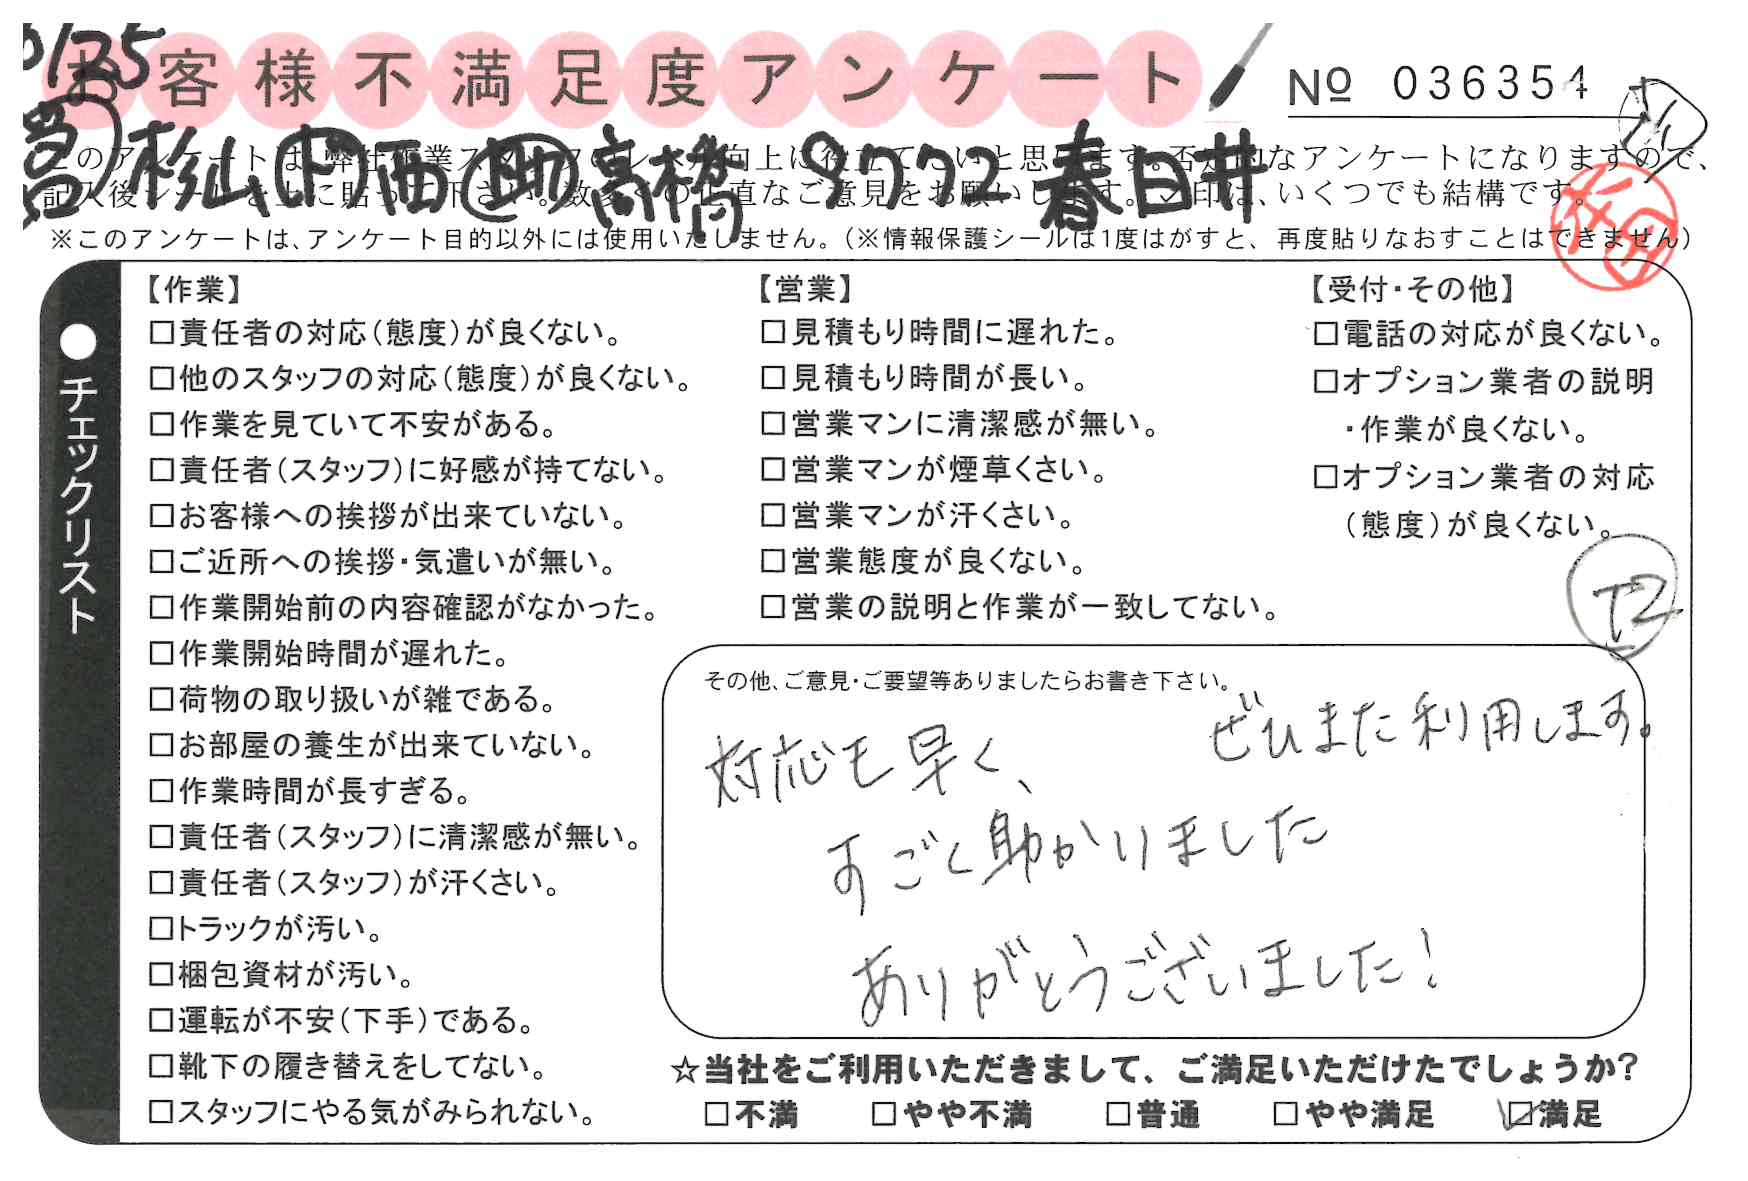 お客様不満足度アンケート
№ 036354
杉山 下 西 助 高橋 9722 春日井
このアンケートは、弊社作業スタッフのレベル向上に役立てたいと思います。否定的なアンケートになりますので、
記入後シールを上に貼って下さい。数多くの正直なご意見をお願いします。✓印は、いくつでも結構です。
※このアンケートは、アンケート目的以外には使用いたしません。（※情報保護シールは1度はがすと、再度貼りなおすことはできません）
●チェックリスト
【作業】
□責任者の対応（態度）が良くない。
□他のスタッフの対応（態度）が良くない。
□作業を見ていて不安がある。
□責任者（スタッフ）に好感が持てない。
□お客様への挨拶が出来ていない。
□ご近所への挨拶・気遣いが無い。
□作業開始前の内容確認がなかった。
□作業開始時間が遅れた。
□荷物の取り扱いが雑である。
□お部屋の養生が出来ていない。
□作業時間が長すぎる。
□責任者（スタッフ）に清潔感が無い。
□責任者（スタッフ）が汗くさい。
□トラックが汚い。
□梱包資材が汚い。
□運転が不安（下手）である。
□靴下の履き替えをしてない。
□スタッフにやる気がみられない。
【営業】
□見積もり時間に遅れた。
□見積もり時間が長い。
□営業マンに清潔感が無い。
□営業マンが煙草くさい。
□営業マンが汗くさい。
□営業態度が良くない。
□営業の説明と作業が一致してない。
【受付・その他】
□電話の対応が良くない。
□オプション業者の説明
・作業が良くない。
□オプション業者の対応
（態度）が良くない。
T2
その他、ご意見・ご要望等ありましたらお書き下さい。
対応も早く、
すごく助かりました
ありがとうございました！
ぜひまた利用します。
☆当社をご利用いただきまして、ご満足いただけたでしょうか？
□不満 □やや不満 □普通 □やや満足 ☑満足